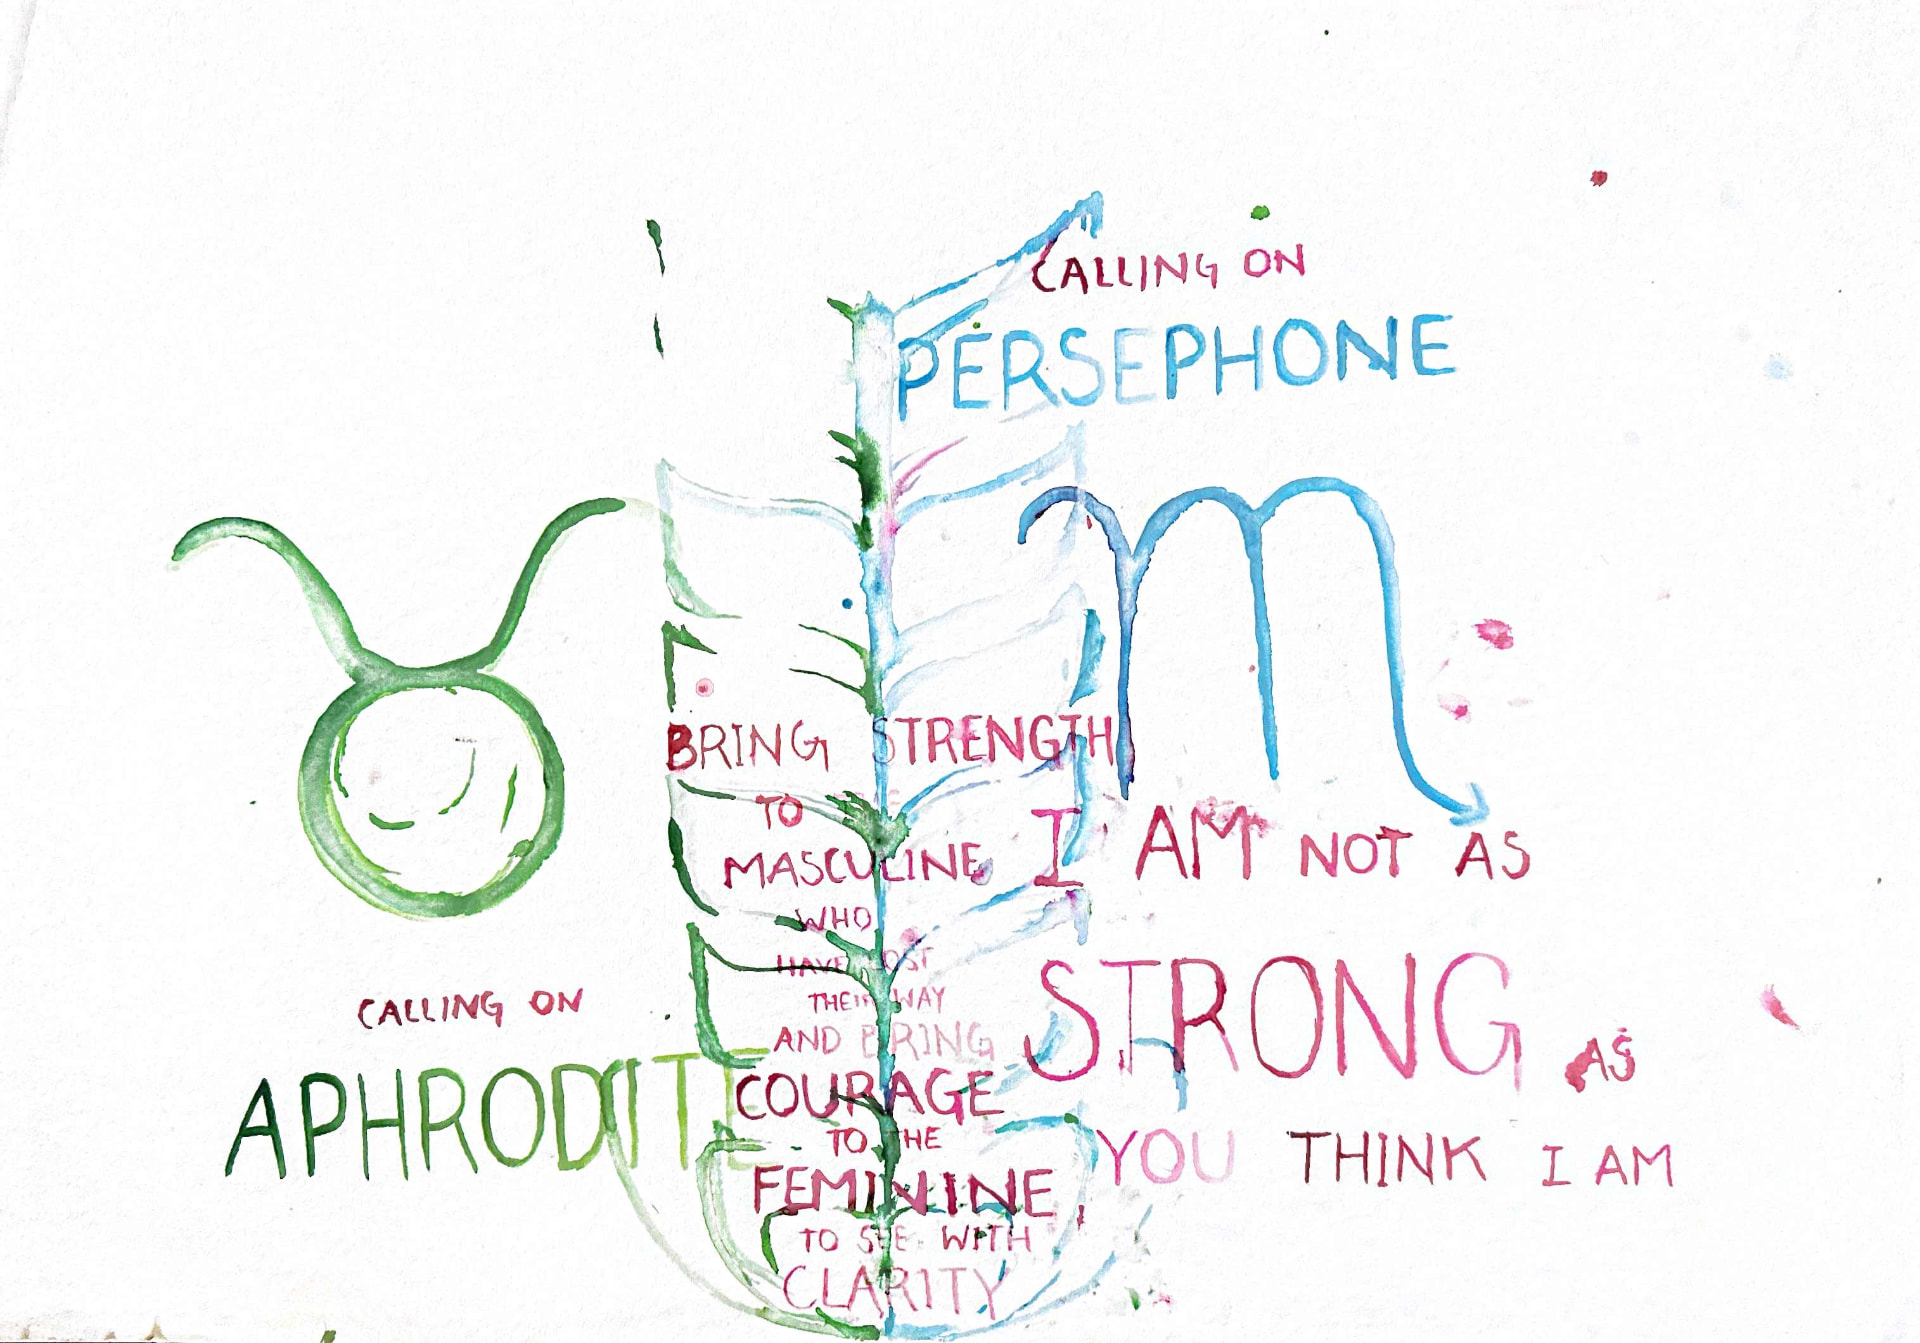 CALLING ON
PERSEPHONE
BRING STRENGTH
TO
MASCULINE
WHO
HAVE LOST
THEIR WAY
AND BRING
COURAGE
TO THE
FEMININE,
TO SEE WITH
CLARITY
I AM NOT AS
STRONG AS
YOU THINK I AM
CALLING ON
APHRODITE